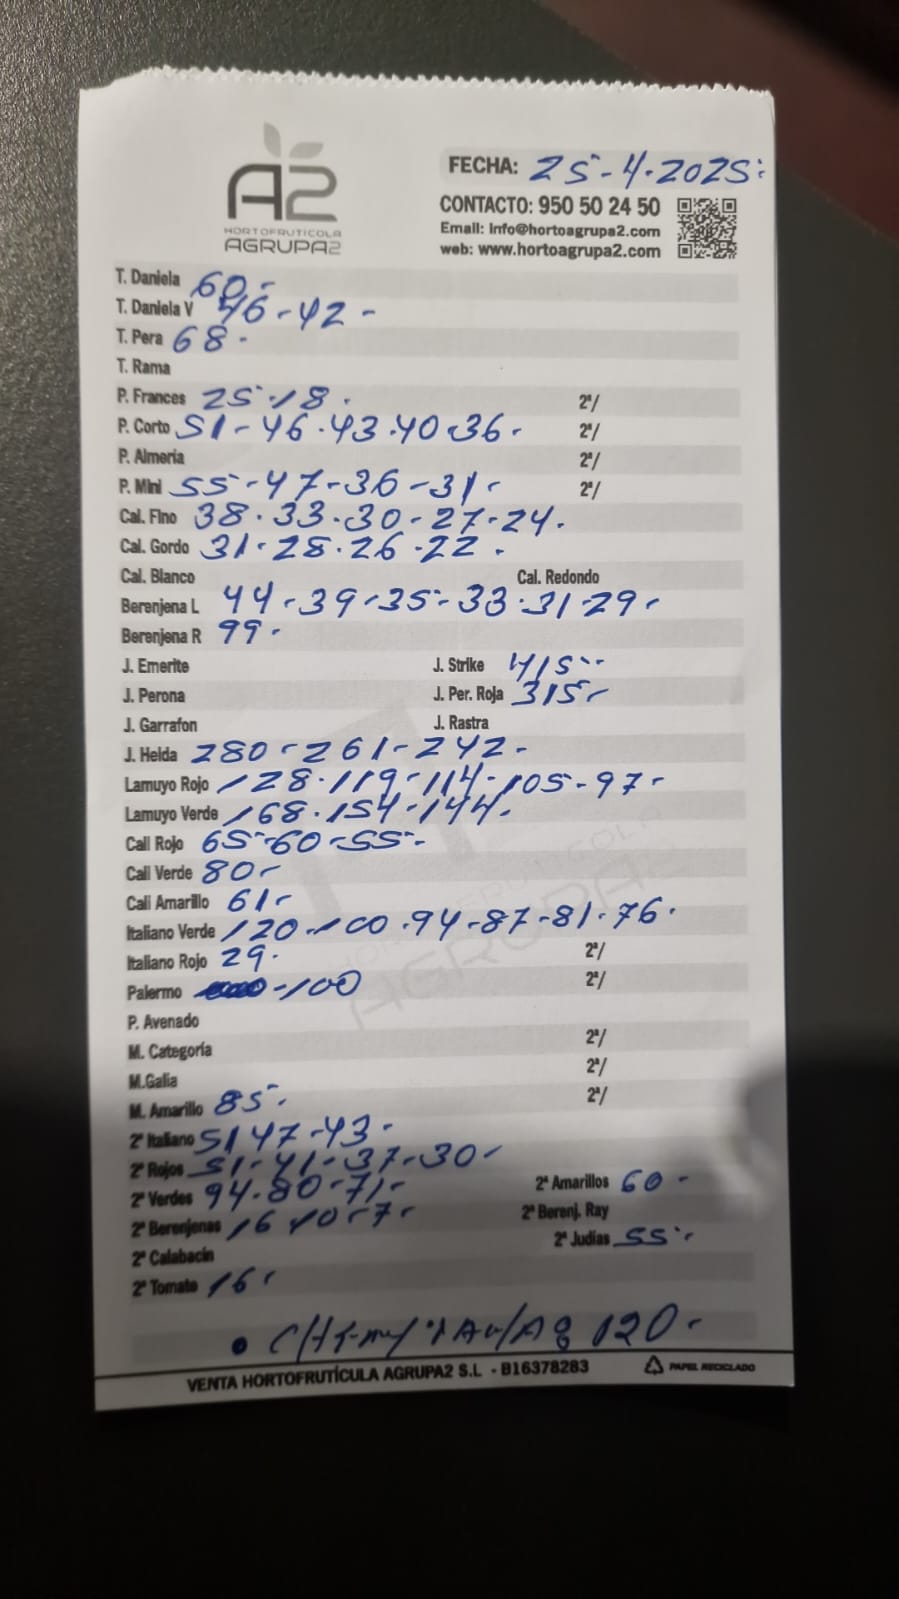 A2
HORTOFRUTICOLA
AGRUPA2
FECHA: 25-4-2025
CONTACTO: 950 50 24 50
Email: info@hortoagrupa2.com
web: www.hortoagrupa2.com
T. Daniela 60-
T. Daniela V 46-42-
T. Pera 68-
T. Rama
P. Frances 25-18. 2ª/
P. Corto 51-46-43-40-36- 2ª/
P. Almeria 2ª/
P. Mini 55-47-36-31- 2ª/
Cal. Fino 38-33-30-27-24.
Cal. Gordo 31-28-26-22-
Cal. Blanco Cal. Redondo
Berenjena L 44-39-35-33-31-29-
Berenjena R 99-
J. Emerite J. Strike 415-
J. Perona J. Per. Roja 315-
J. Garrafon J. Rastra
J. Helda 280-261-242-
Lamuyo Rojo 128-119-114-105-97-
Lamuyo Verde 168-154-144.
Cali Rojo 65-60-55-
Cali Verde 80-
Cali Amarillo 61-
Italiano Verde 120-100-94-87-81-76.
Italiano Rojo 29. 2ª/
Palermo -100 2ª/
P. Avenado
M. Categoría 2ª/
M.Galia 2ª/
M. Amarillo 85- 2ª/
2ª Italiano 51 47-43-
2ª Rojos 51-41-37-30-
2ª Verdes 94-80-71- 2ª Amarillos 60-
2ª Berenjenas 16-10-7- 2ª Berenj. Ray
2ª Calabacin 2ª Judias 55-
2ª Tomate 16-
120-
VENTA HORTOFRUTÍCULA AGRUPA2 S.L - B16378283 PAPEL RECICLADO